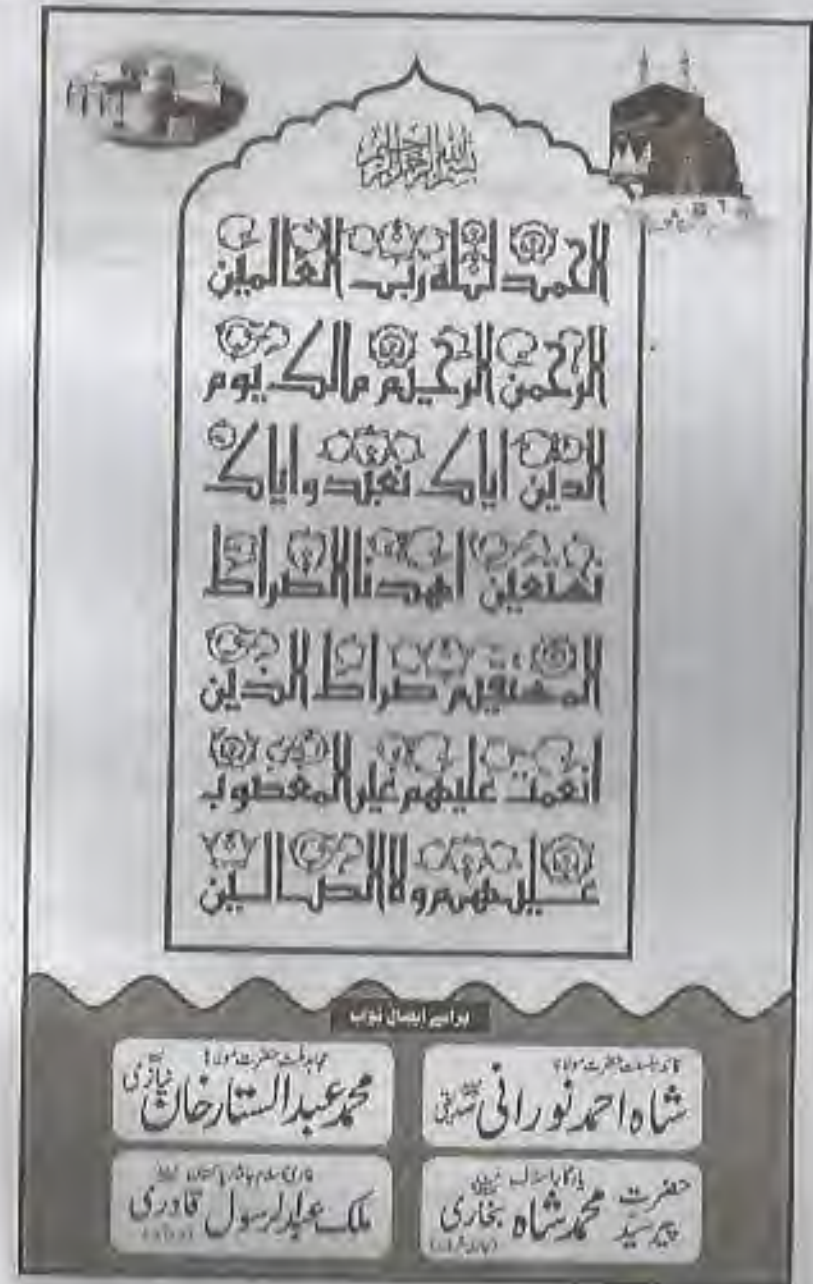 بسم الله الرحمن الرحيم
الحمد لله رب العالمين
الرحمن الرحيم مالك يوم
الدين اياك نعبد واياك
نستعين اهدنا الصراط
المستقيم صراط الذين
انعمت عليهم غير المغضوب
عليهم ولا الضالين
برائے ایصال ثواب
قائد اہلسنت حضرت مولانا
شاہ احمد نورانی صدیقی
مجاہد ملت حضرت مولانا
محمد عبدالستار خان نیازی
یادگار اسلاف
حضرت پیر سید محمد شاہ بخاری
ملک عبدالرسول قادری